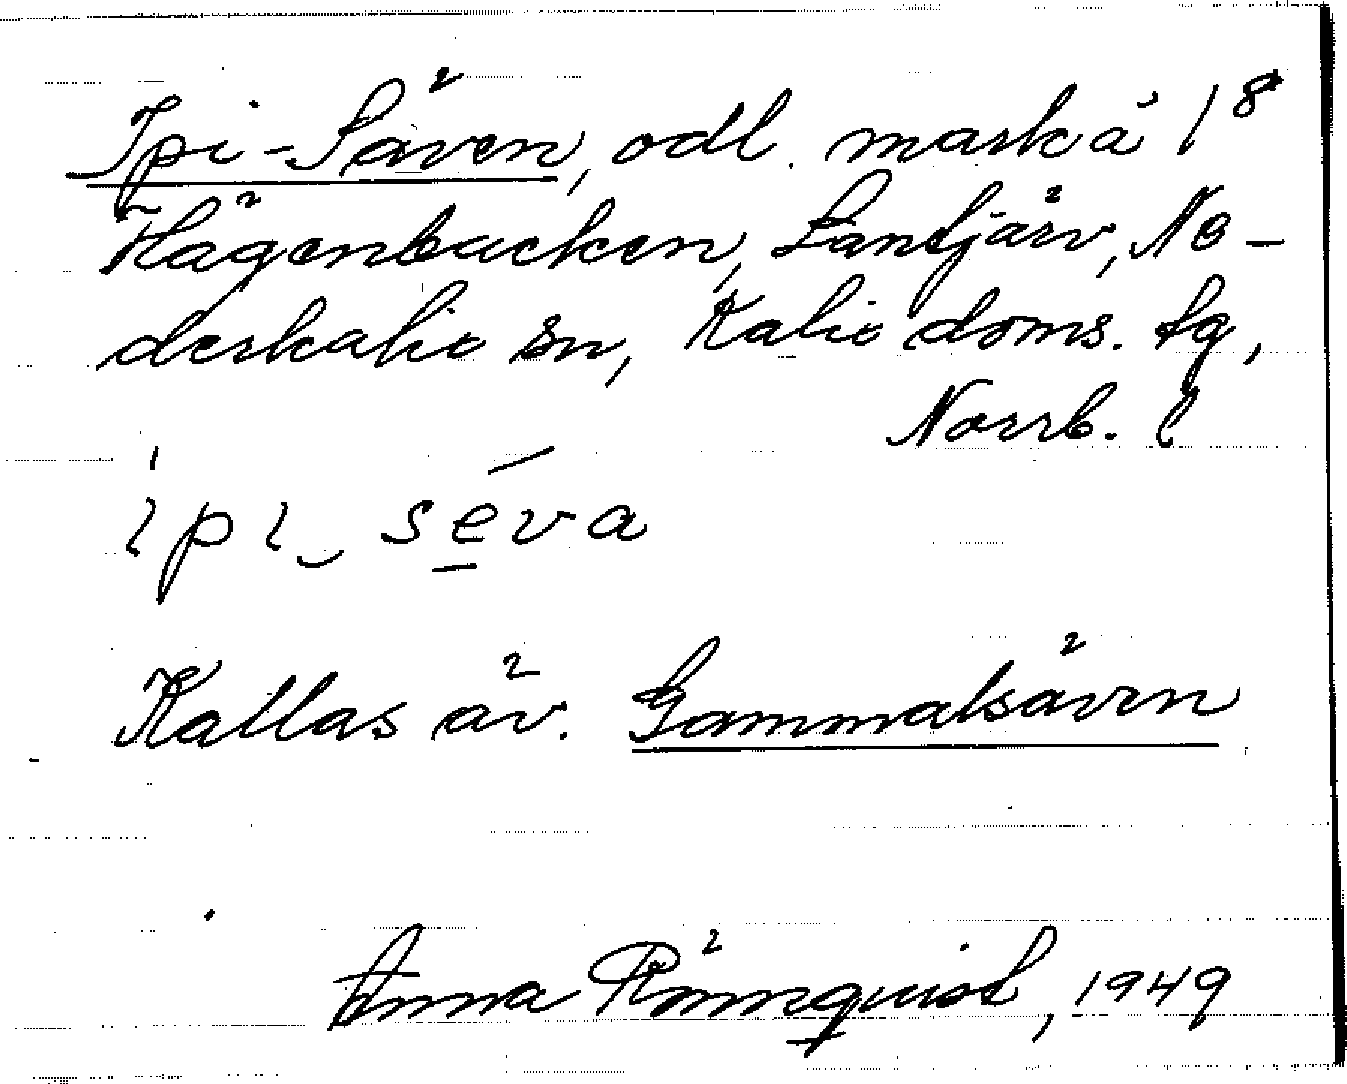 Ipi-Säven, odl. mark å 1⁸
Hägenbäcken, Säntjärv, Ne-
derkalix sn, Kalix doms. sg,
Norrb. l
ípi‿séva
Kallas äv. Gammalsäven
Anna Rönnquist, 1949